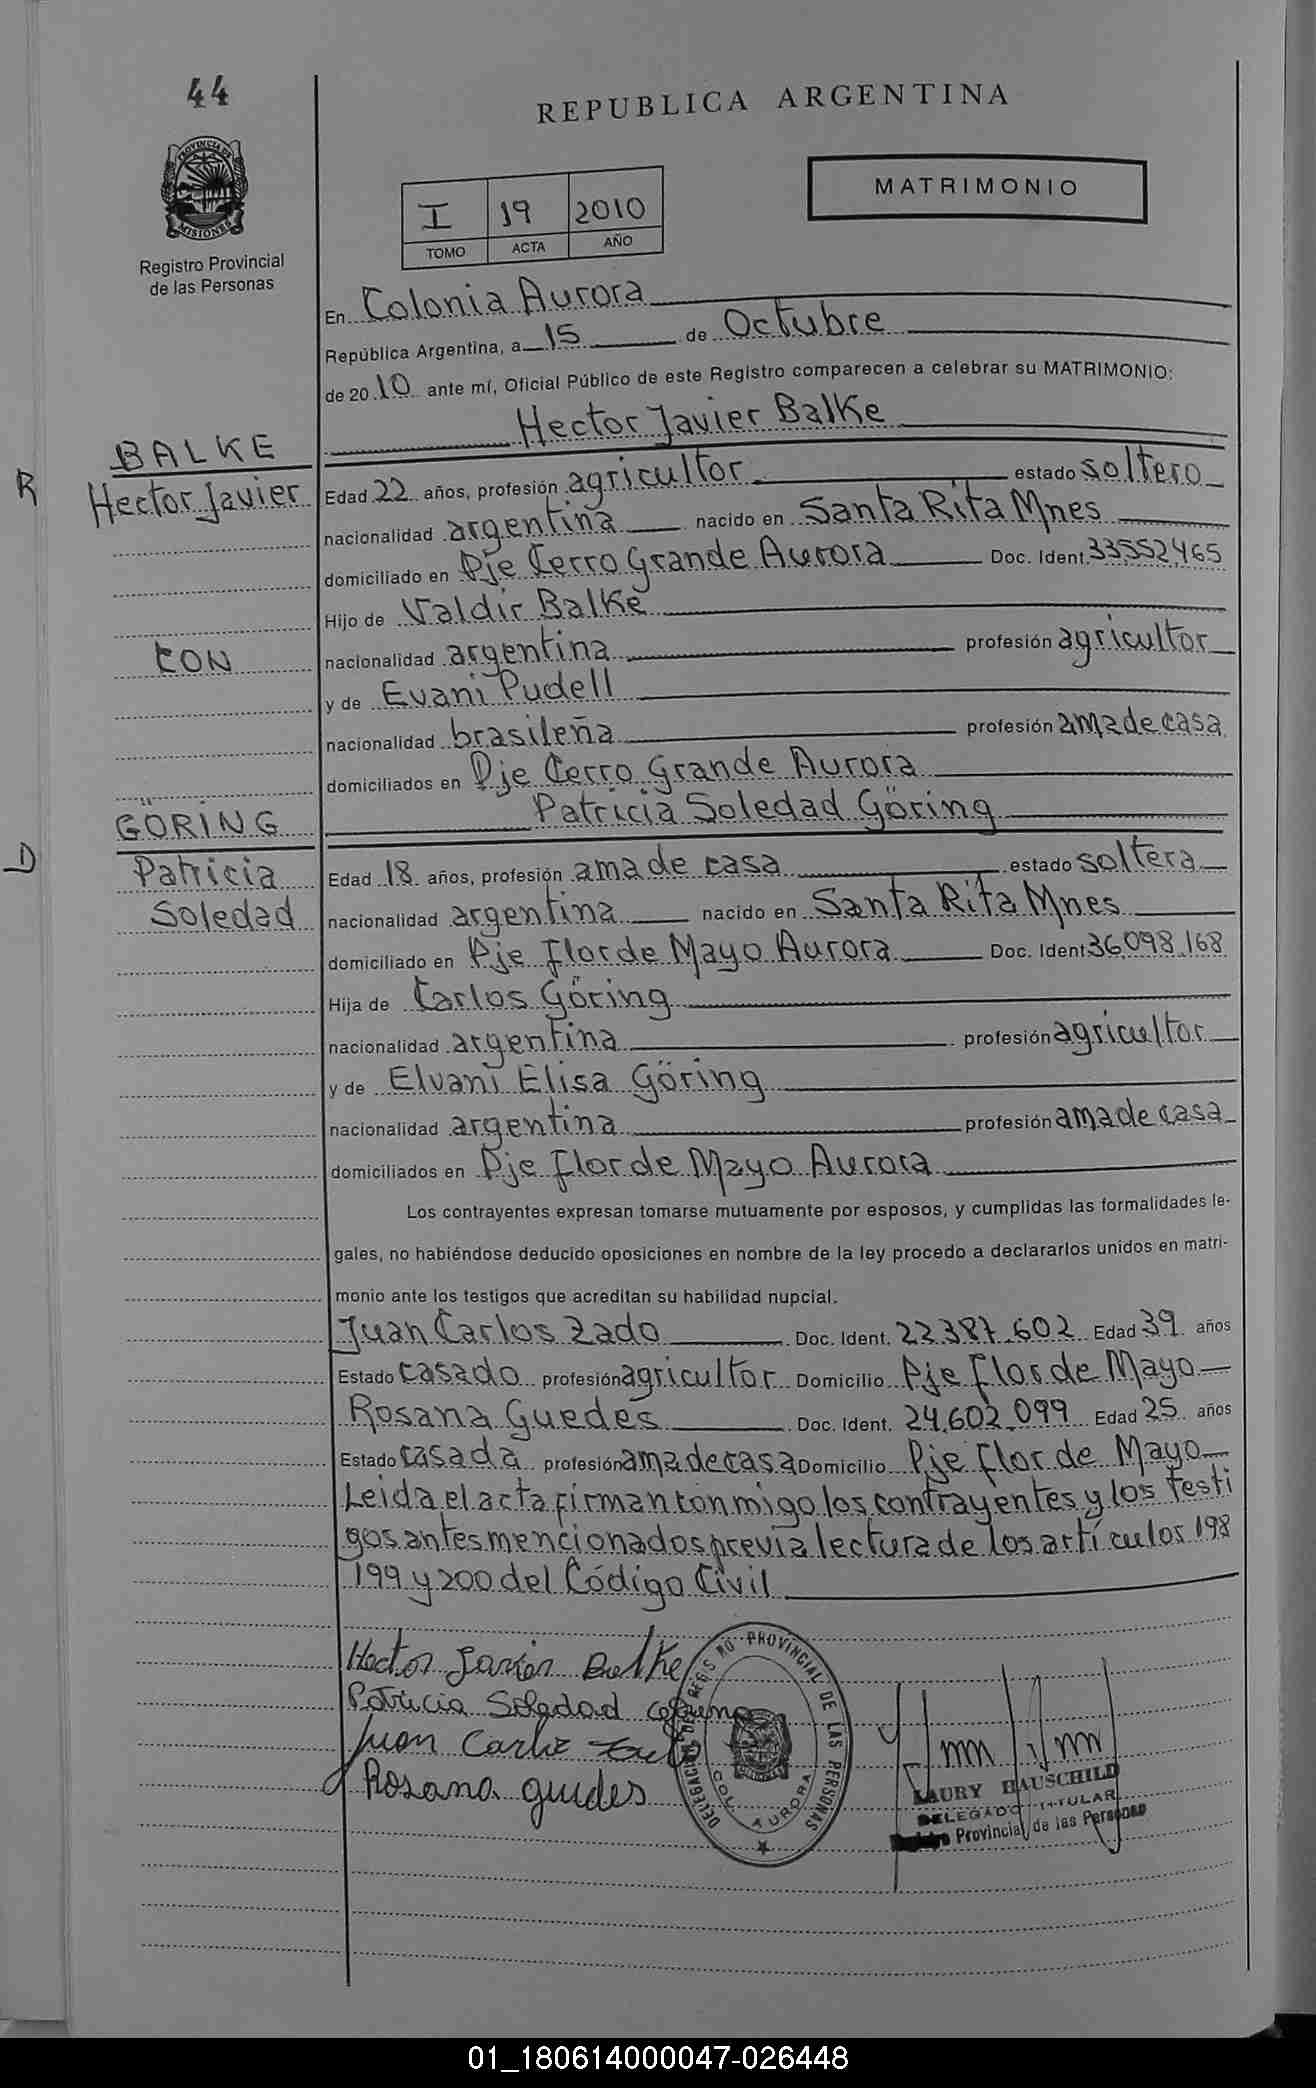 44
REPUBLICA ARGENTINA
PROVINCIA DE
MISIONES
Registro Provincial
de las Personas
MATRIMONIO
I 19 2010
TOMO ACTA AÑO
En Colonia Aurora
República Argentina, a 15 de Octubre
de 2010 ante mí, Oficial Público de este Registro comparecen a celebrar su MATRIMONIO:
Hector Javier Balke
BALKE
R
Hector Javier
Edad 22 años, profesión agricultor estado soltero
nacionalidad argentina nacido en Santa Rita Mnes
domiciliado en Pje Cerro Grande Aurora Doc. Ident. 33552.465
Hijo de Valdir Balke
CON
nacionalidad argentina profesión agricultor
y de Evani Pudell
nacionalidad brasileña profesión ama de casa
domiciliados en Pje Cerro Grande Aurora
GÖRING
Patricia Soledad Göring
D
Patricia
Soledad
Edad 18 años, profesión ama de casa estado soltera
nacionalidad argentina nacido en Santa Rita Mnes
domiciliado en Pje Flor de Mayo Aurora Doc. Ident 36.098.168
Hija de Carlos Göring
nacionalidad argentina profesión agricultor
y de Elvani Elisa Göring
nacionalidad argentina profesión ama de casa
domiciliados en Pje Flor de Mayo Aurora
Los contrayentes expresan tomarse mutuamente por esposos, y cumplidas las formalidades le-
gales, no habiéndose deducido oposiciones en nombre de la ley procedo a declararlos unidos en matri-
monio ante los testigos que acreditan su habilidad nupcial.
Juan Carlos Zado Doc. Ident. 22.387.602 Edad 39 años
Estado casado profesión agricultor Domicilio Pje Flor de Mayo
Rosana Guedes Doc. Ident. 24.602.099 Edad 25 años
Estado casada profesión ama de casa Domicilio Pje Flor de Mayo
Leida el acta firman conmigo los contrayentes y los testi
gos antes mencionados previa lectura de los artículos 198
199 y 200 del Código Civil
Hector Javier Balke
Patricia Soledad
Juan Carlos
Rosana guedes
DELEGACION DEL REGIS RO PROVINCIAL DE LAS PERSONAS
COL. AURORA
LAURY HAUSCHILD
DELEGADO TITULAR
Provincial de las Personas
01_180614000047-026448